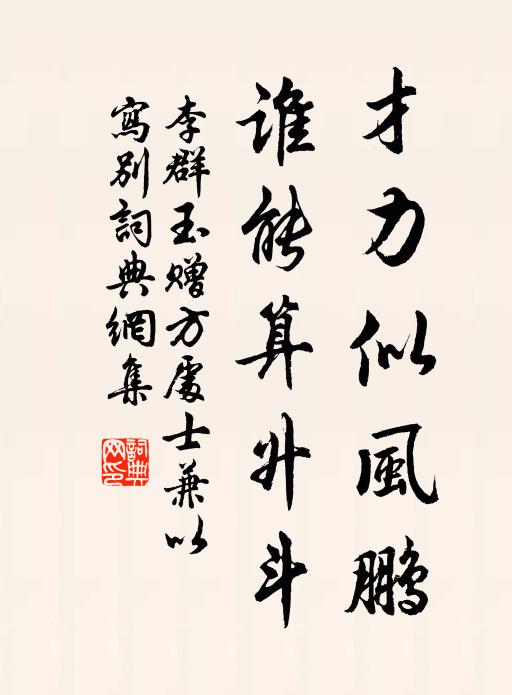 才力似風鵬
誰能算升斗
李群玉贈方處士兼以
寫別詞典網集
詞典网印